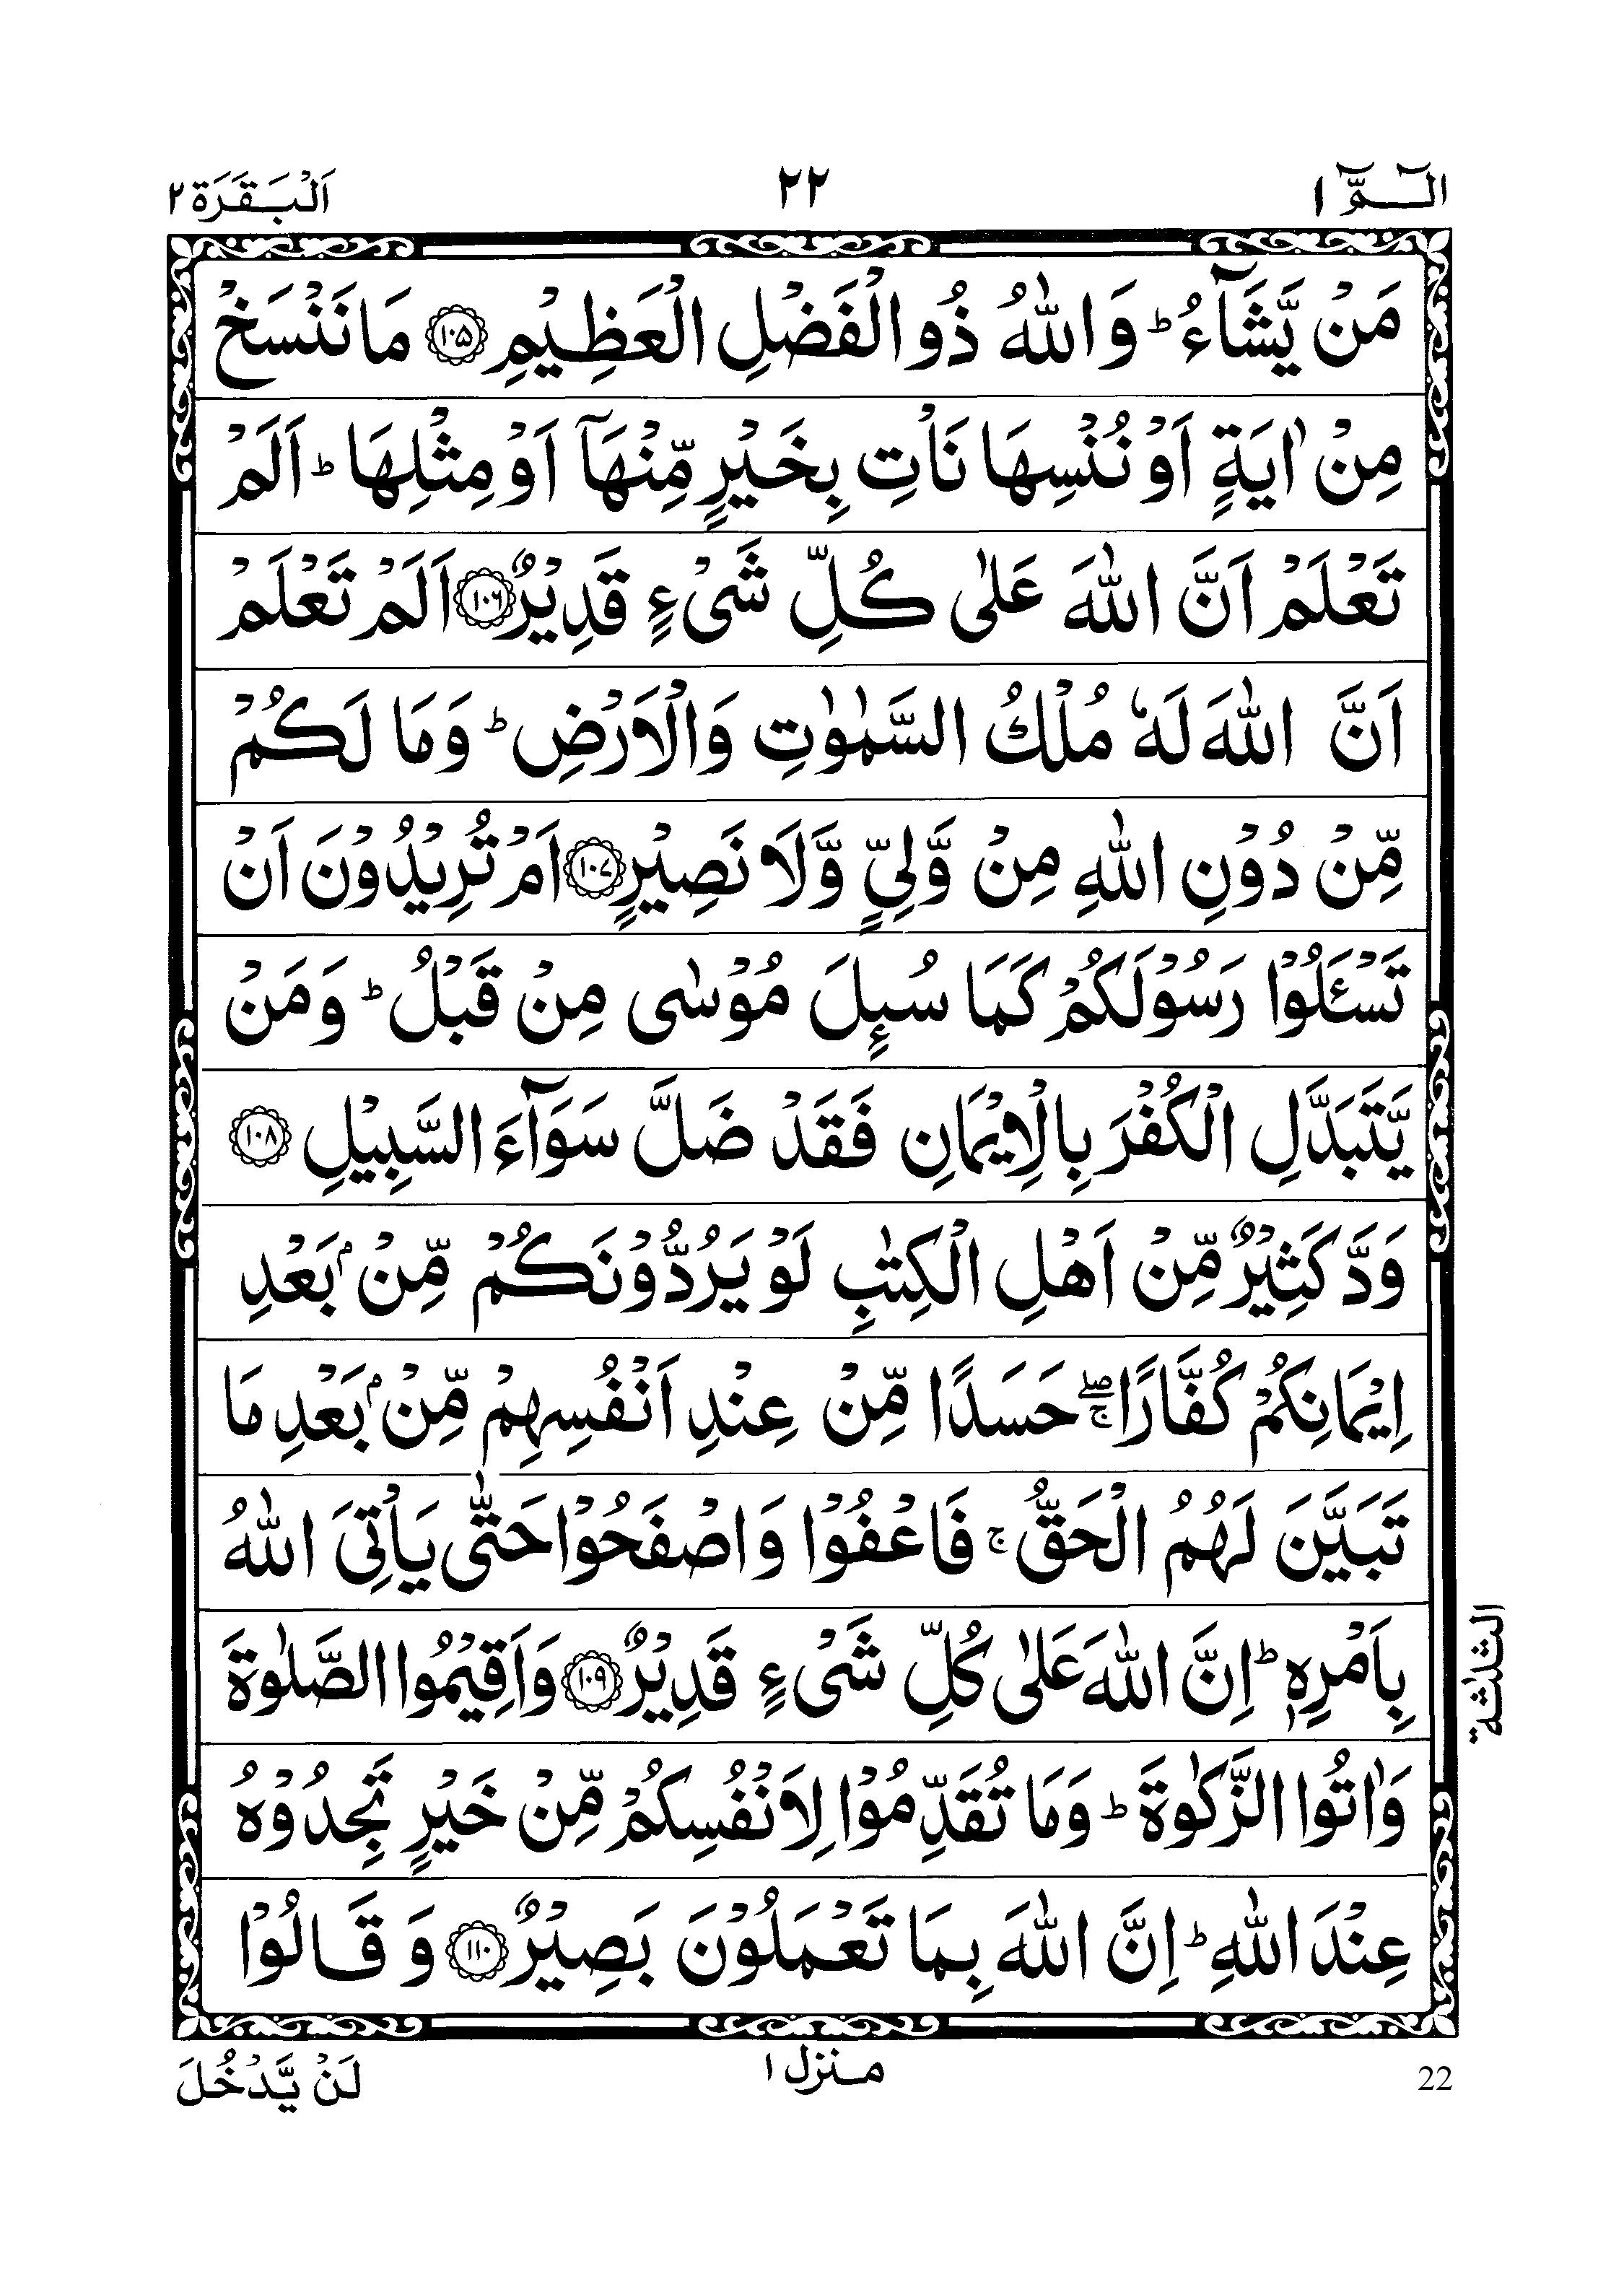 الٓـمّٓ ١ ٢٢ اَلْبَقَرَة ٢
مَنْ يَّشَآءُ ؕ وَاللّٰهُ ذُو الْفَضْلِ الْعَظِيْمِ ۝۱۰۵ مَا نَنْسَخْ
مِنْ اٰيَةٍ اَوْ نُنْسِهَا نَاْتِ بِخَيْرٍ مِّنْهَآ اَوْ مِثْلِهَا ؕ اَلَمْ
تَعْلَمْ اَنَّ اللّٰهَ عَلٰى كُلِّ شَىْءٍ قَدِيْرٌ ۝۱۰۶ اَلَمْ تَعْلَمْ
اَنَّ اللّٰهَ لَهٗ مُلْكُ السَّمٰوٰتِ وَالْاَرْضِ ؕ وَمَا لَكُمْ
مِّنْ دُوْنِ اللّٰهِ مِنْ وَّلِىٍّ وَّلَا نَصِيْرٍ ۝۱۰۷ اَمْ تُرِيْدُوْنَ اَنْ
تَسْـَٔلُوْا رَسُوْلَكُمْ كَمَا سُىِٕلَ مُوْسٰى مِنْ قَبْلُ ؕ وَمَنْ
يَّتَبَدَّلِ الْكُفْرَ بِالْاِيْمَانِ فَقَدْ ضَلَّ سَوَآءَ السَّبِيْلِ ۝۱۰۸
وَدَّ كَثِيْرٌ مِّنْ اَهْلِ الْكِتٰبِ لَوْ يَرُدُّوْنَكُمْ مِّنْۢ بَعْدِ
اِيْمَانِكُمْ كُفَّارًا ۖۚ حَسَدًا مِّنْ عِنْدِ اَنْفُسِهِمْ مِّنْۢ بَعْدِ مَا
تَبَيَّنَ لَهُمُ الْحَقُّ ۚ فَاعْفُوْا وَاصْفَحُوْا حَتّٰى يَاْتِىَ اللّٰهُ
بِاَمْرِهٖ ؕ اِنَّ اللّٰهَ عَلٰى كُلِّ شَىْءٍ قَدِيْرٌ ۝۱۰۹ وَاَقِيْمُوا الصَّلٰوةَ
الثلٰثة
وَاٰتُوا الزَّكٰوةَ ؕ وَمَا تُقَدِّمُوْا لِاَنْفُسِكُمْ مِّنْ خَيْرٍ تَجِدُوْهُ
عِنْدَ اللّٰهِ ؕ اِنَّ اللّٰهَ بِمَا تَعْمَلُوْنَ بَصِيْرٌ ۝۱۱۰ وَ قَالُوْا
22 منزل ١ لَنْ يَّدْخُلَ